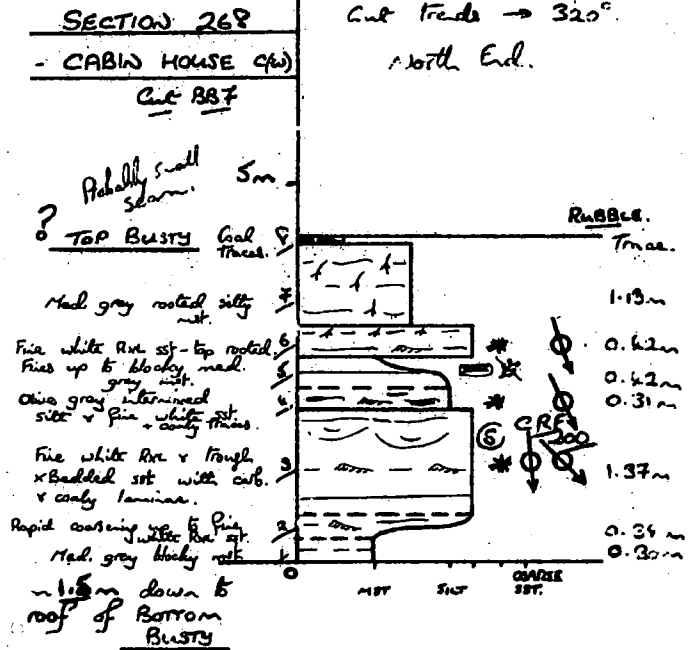 SECTION 268
- CABIN HOUSE C/W)
Cut BB7
Cut Trends → 320°.
North End.
Probably small
seam.
5m
RUBBLE.
? TOP BUSTY
Coal
Traces.
8
Trace.
Med. grey rooted silty
mst.
7
1.13m
Fine white Rxl sst - top rooted.
6
0.42m
Fines up to blocky med.
grey mst.
5
0.42m
Olive grey interminxed
silt & fine white sst.
+ coaly traces.
4
0.31m
S
CRF
200
Fine white Rxl & trough
xBedded sst with carb.
& coaly laminae.
3
1.37m
Rapid coarsening up to fine
white Rxl sst.
2
0.34m
Med. grey blocky mst.
1
0.30m
0
MST
SILT
COARSE
SST.
~1.5m down to
roof of BOTTOM
BUSTY